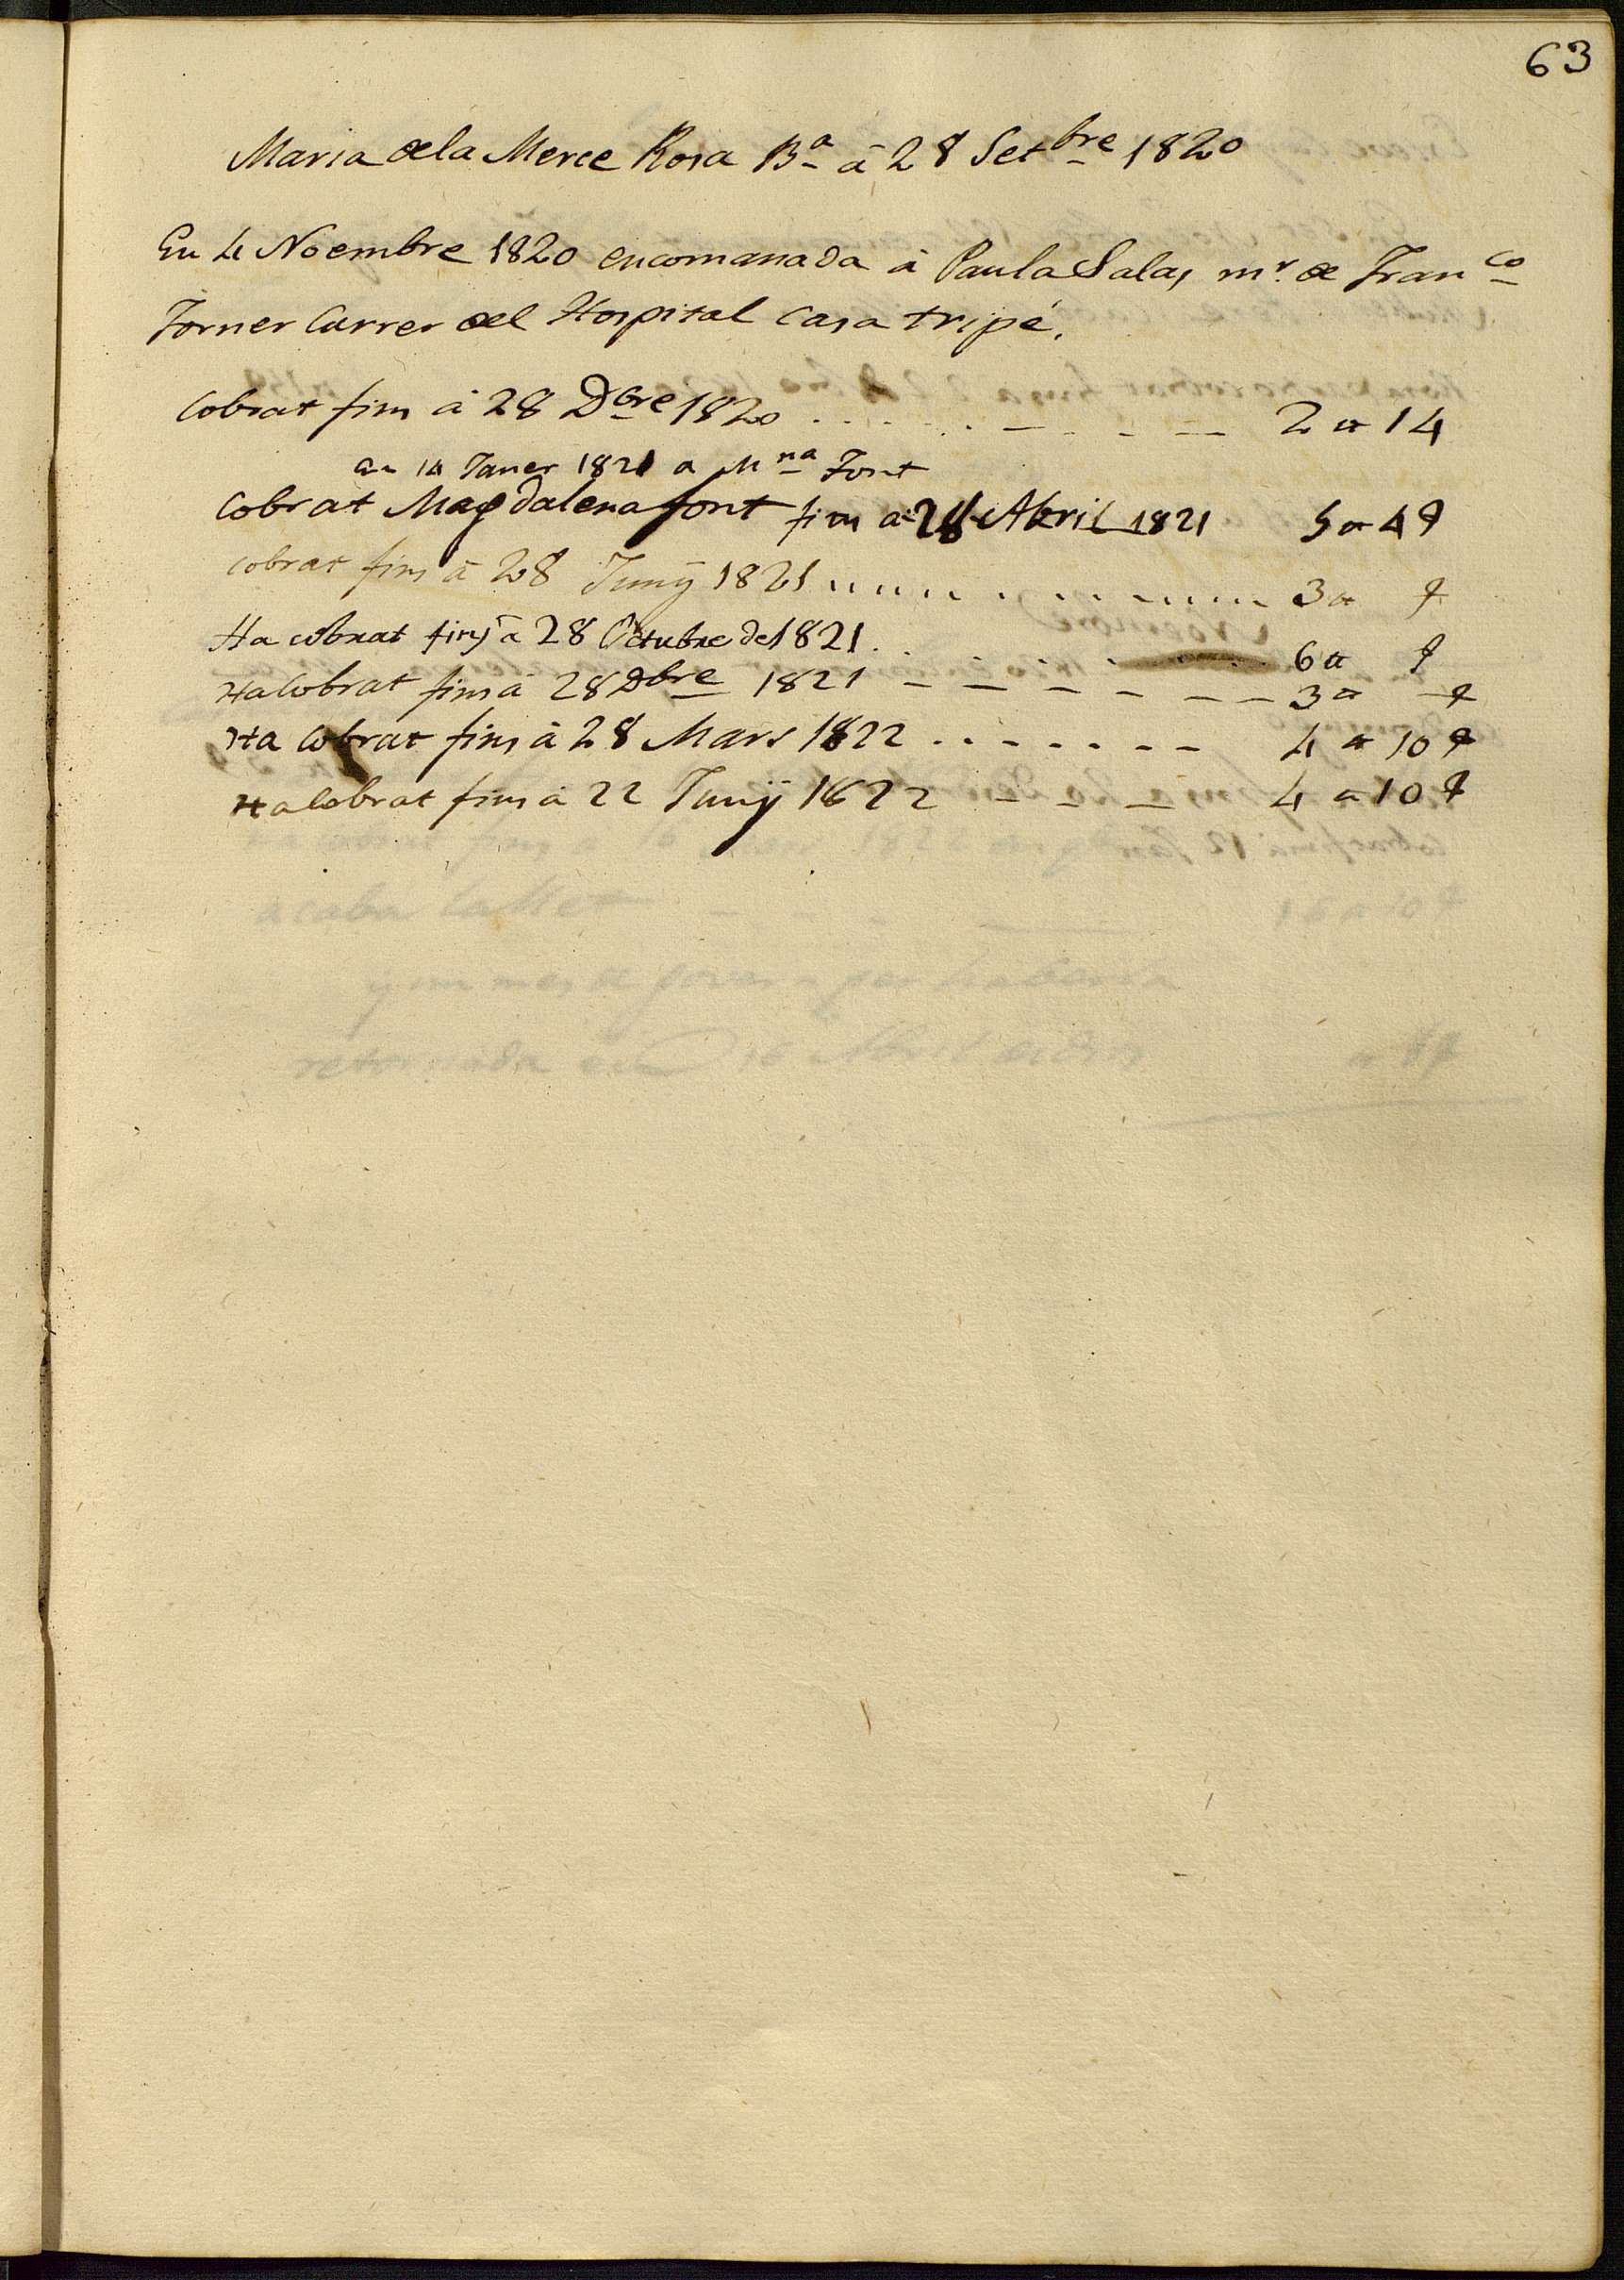 63
Maria dela Merce Rosa Bª à 28 Setbre 1820
En 4 Noembre 1820 encomanada à Paula Salas mr. de Franco
Forner Carrer del Hospital Casa tripé.
Cobrat fins à 28 Dbre 1820 2 ₶ 14
en 14 Janer 1821 a Mna Font
Cobrat Magdalena font fins a 28 Abril 1821 5 ₶ 4 ș
Cobrat fins à 28 Juny 1821 3 ₶ ș
Ha cobrat fins à 28 Octubre de 1821 6 ₶ ș
Ha Cobrat fins à 28 Dbre 1821 3 ₶ ș
Ha Cobrat fins à 28 Mars 1822 4 ₶ 10 ș
Ha Cobrat fins à 22 Juny 1822 4 ₶ 10 ș
acaba la llet 16 ₶ 10 ș
retornada Abril